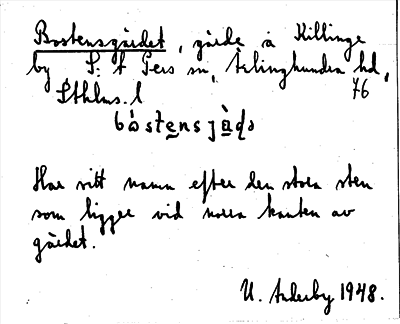 Bostensgärdet, gärde å Killinge
by S:t Pers sn, Ärlinghundra hd,
Sthlms. l 76
bòstensjà̤ḍə
Har sitt namn efter den stora sten
som ligger vid norra kanten av
gärdet.
U. Anderby 1948.